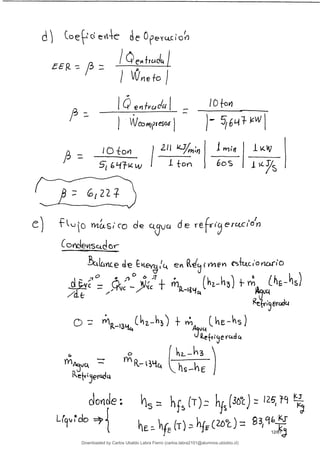 d) Coeficiente de Operación
EER = β = |Q̇entrada| / |Ẇneto|
β = |Q̇ entrada| / |Ẇcompresor| = 10 ton / |- 5,647 kW|
β = 10 ton / 5,647 kW | 211 kJ/min / 1 ton | 1 min / 60 s | 1 kW / 1 kJ/s
β = 6,227
e) Flujo másico de agua de refrigeración
Condensador
Balance de Energía en Régimen estacionario
dEvc/dt = Q̇vc - Ẇvc + ṁR-134a (h2-h3) + ṁAgua Refrigerada (hE-hs)
0 = ṁR-134a (h2-h3) + ṁAgua Refrigerada (hE-hs)
ṁAgua Refrigerada = ṁR-134a (h2-h3 / hs-hE)
donde: hs = hfs (T) = hfs (30°C) = 125,79 kJ/kg
Líquido ⇒ { hE = hfE (T) = hfE (20°C) = 83,96 kJ/kg
Downloaded by Carlos Ubaldo Labra Fierro (carlos.labra2101@alumnos.ubiobio.cl)